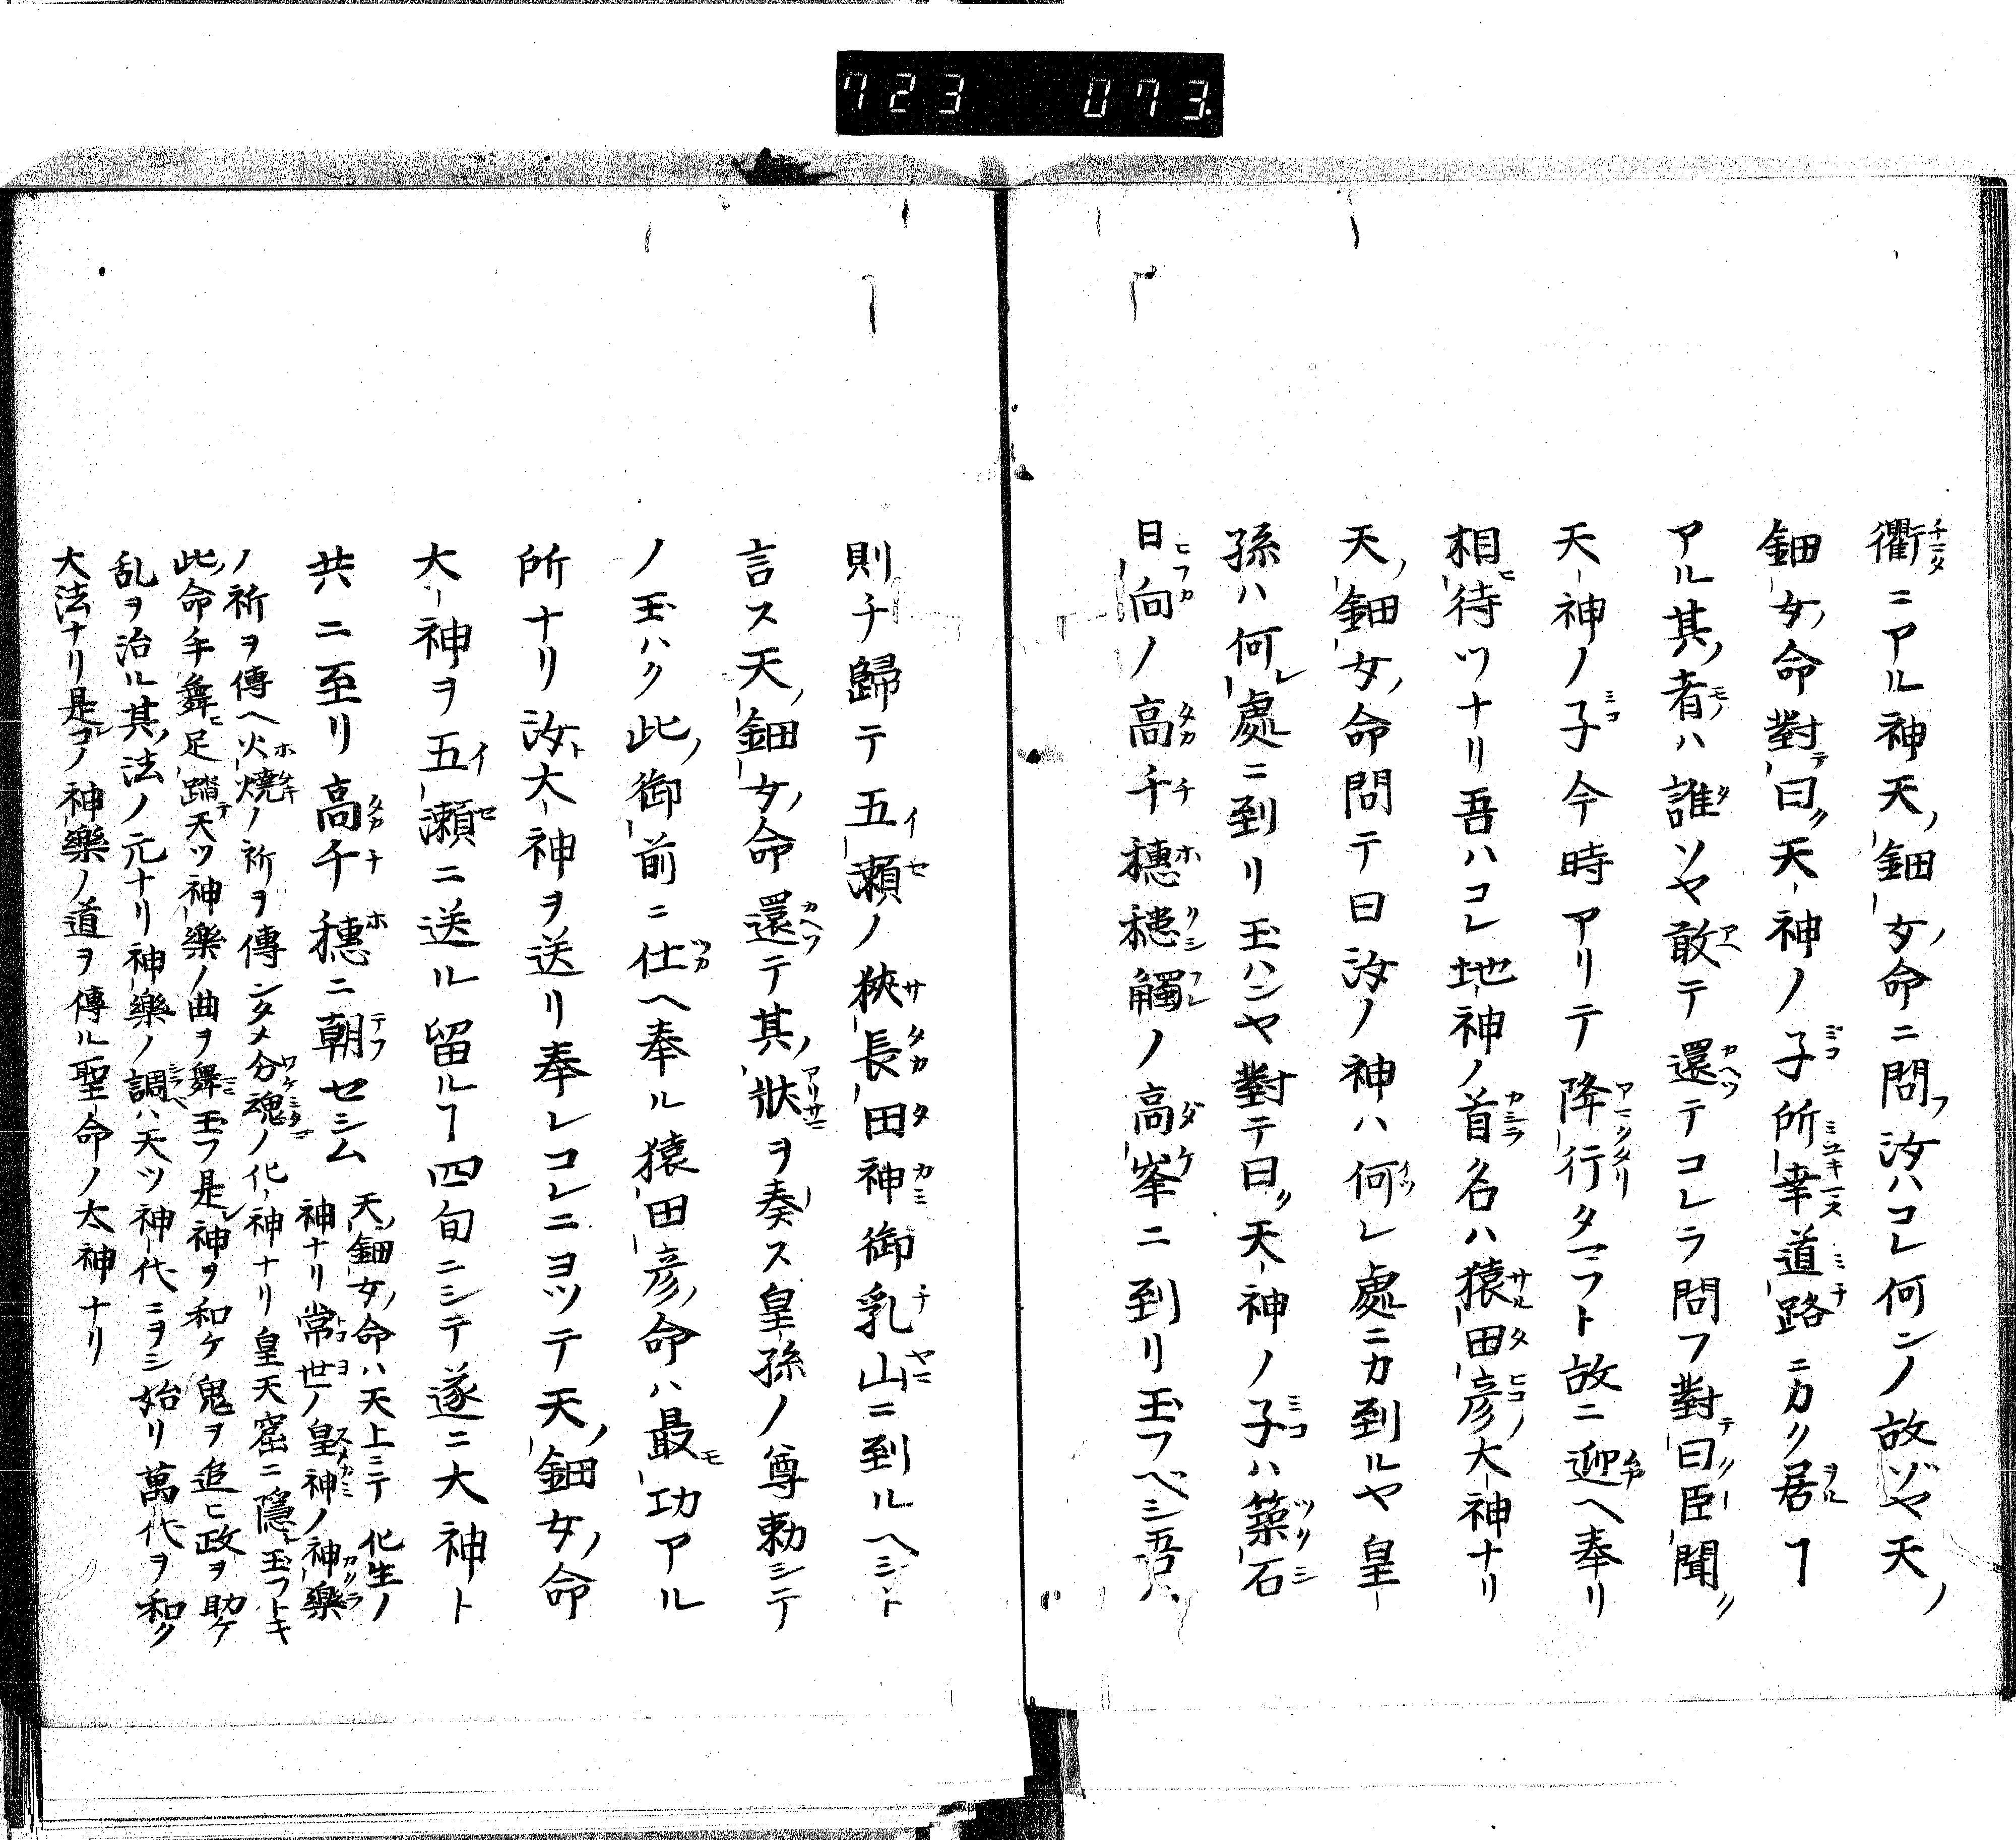 723 073
衢ニアル神天ノ鈿女ノ命ニ問フ汝ハコレ何ンノ故ゾヤ天ノ
鈿女ノ命對テ曰ク天神ノ子所幸道路ニカク居ヿ
アル其ノ者ハ誰ソヤ敢テ還テコレラ問フ對曰臣聞ク
天神ノ子今時アリテ降行タマフト故ニ迎ヘ奉リ
相待ツナリ吾ハコレ地神ノ首名ハ猿田彦大神ナリ
天ノ鈿女ノ命問テ曰汝ノ神ハ何レ處ニカ到ルヤ皇
孫ハ何レ處ニ到リ玉ハンヤ對テ曰ク天神ノ子ハ築石
日向ノ高千穗穂觸ノ高峯ニ到リ玉フベシ吾ハ
則チ歸テ五瀬ノ狹長田神御乳山ニ到ルヘシト
言ス天ノ鈿女ノ命還テ其ノ狀ヲ奏ス皇孫ノ尊勅シテ
ノ玉ハク此ノ御前ニ仕ヘ奉ル猿田彦ノ命ハ最功アル
所ナリ汝大神ヲ送リ奉レコレニヨツテ天ノ鈿女ノ命
大神ヲ五瀬ニ送ル留ルヿ四旬ニシテ遂ニ大神ト
共ニ至リ高千穗ニ朝セシム
天ノ鈿女ノ命ハ天上ニテ化生ノ
神ナリ常世ノ皇神ノ神樂
ノ祈ヲ傳ヘ火燒ノ祈ヲ傳ンタメ分魂ノ化神ナリ皇天窟ニ隱玉フトキ
此ノ命手舞足踏テ天ツ神樂ノ曲ヲ舞玉フ是レ神ヲ和ケ鬼ヲ追ヒ政ヲ助ケ
乱ヲ治ル其ノ法ノ元ナリ神樂ノ調ハ天ツ神代ニヲシ始リ萬代ヲ和ク
大法ナリ是コノ神樂ノ道ヲ傳ル聖命ノ太神ナリ